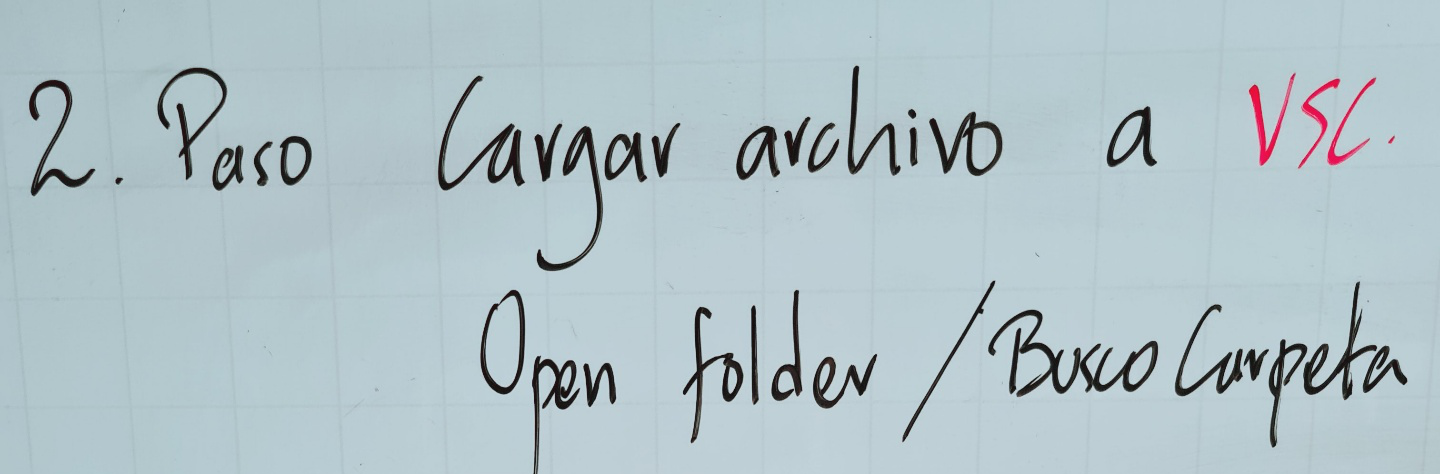 2. Paso Cargar archivo a VSC.
Open folder / Busco Carpeta